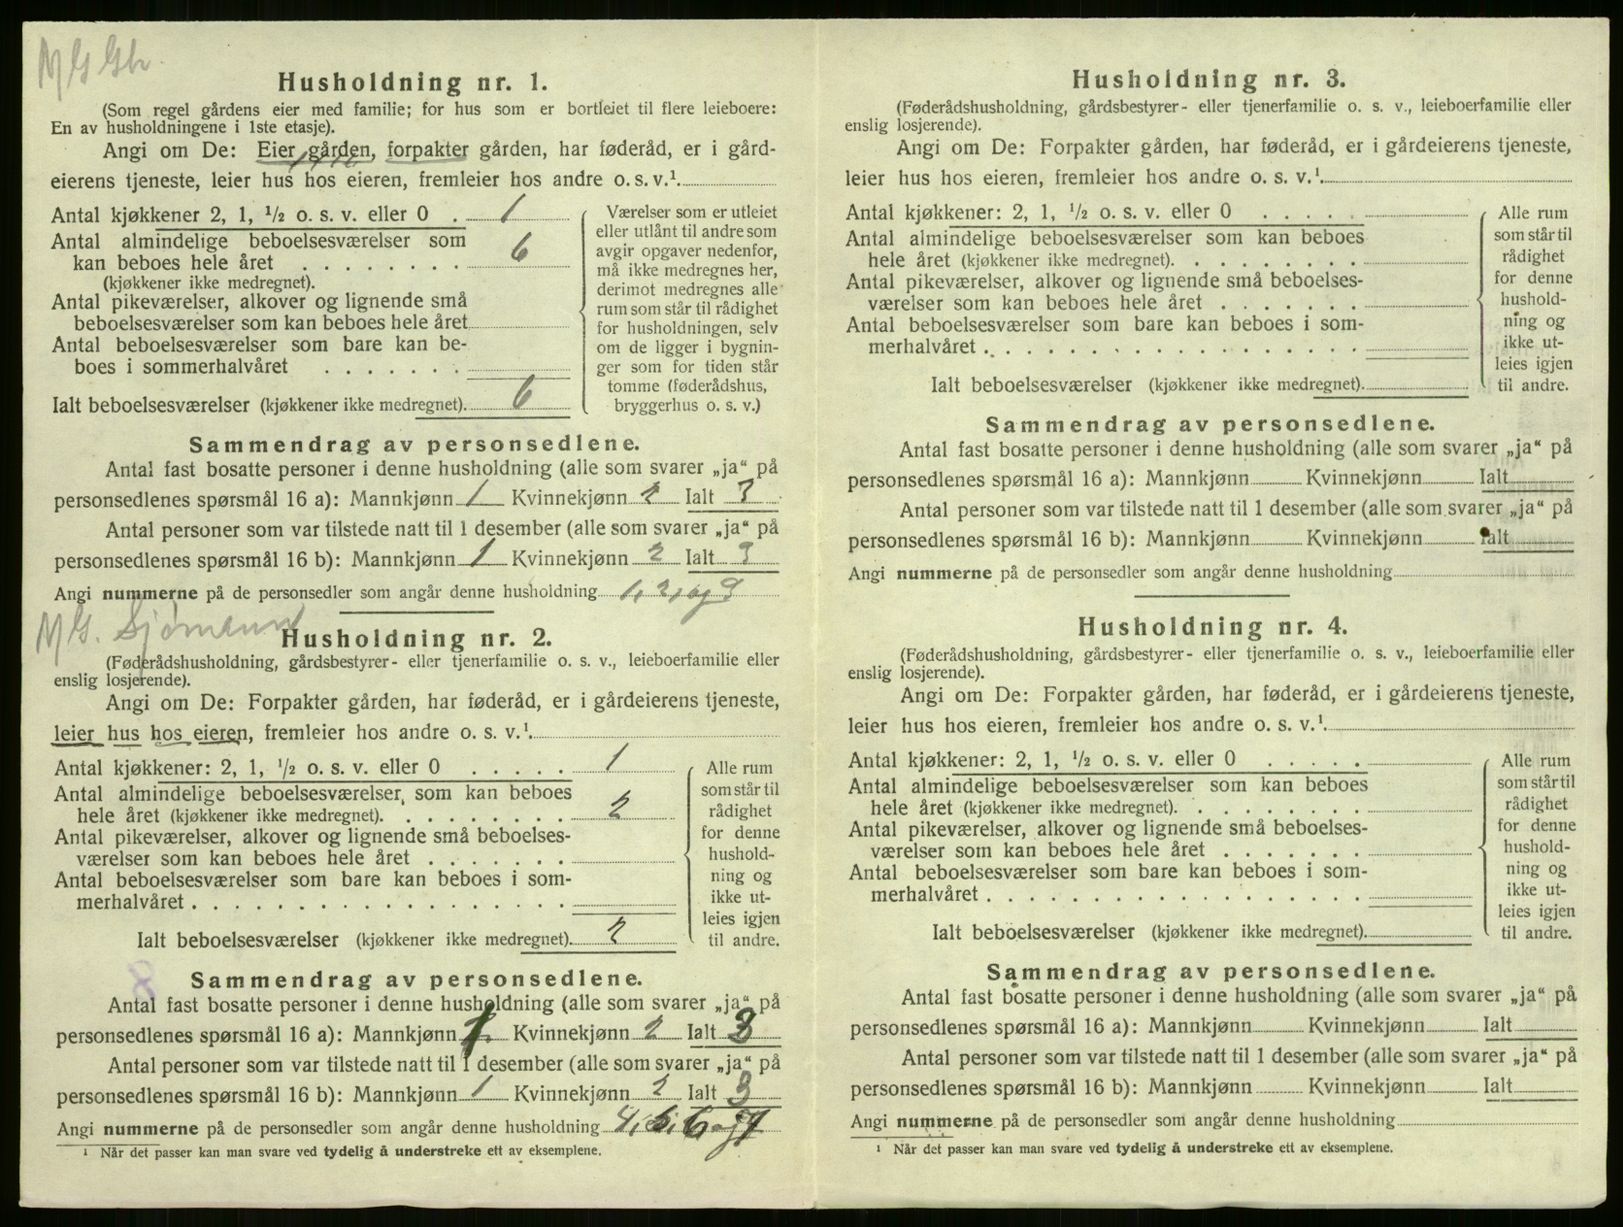 M G Gbr.
Husholdning nr. 1.
(Som regel gårdens eier med familie; for hus som er bortleiet til flere leieboere:
En av husholdningene i 1ste etasje).
Angi om De: Eier gården, forpakter gården, har føderåd, er i gård-
eierens tjeneste, leier hus hos eieren, fremleier hos andre o. s. v.¹
Antal kjøkkener 2, 1, ½ o. s. v. eller 0 . 1
Antal almindelige beboelsesværelser som
kan beboes hele året . . . . . . . . 6
(kjøkkener ikke medregnet).
Antal pikeværelser, alkover og lignende små
beboelsesværelser som kan beboes hele året
Antal beboelsesværelser som bare kan be-
boes i sommerhalvåret . . . . . . .
Ialt beboelsesværelser (kjøkkener ikke medregnet). 6
Værelser som er utleiet
eller utlånt til andre som
avgir opgaver nedenfor,
må ikke medregnes her,
derimot medregnes alle
rum som står til rådighet
for husholdningen, selv
om de ligger i bygnin-
ger som for tiden står
tomme (føderådshus,
bryggerhus o. s. v.)
Sammendrag av personsedlene.
Antal fast bosatte personer i denne husholdning (alle som svarer „ja“ på
personsedlenes spørsmål 16 a): Mannkjønn 1 Kvinnekjønn 2 Ialt 3
Antal personer som var tilstede natt til 1 desember (alle som svarer „ja“ på
personsedlenes spørsmål 16 b): Mannkjønn 1 Kvinnekjønn 2 Ialt 3
Angi nummerne på de personsedler som angår denne husholdning 1, 2, og 3
M G. Sjømann
Husholdning nr. 2.
(Føderådshusholdning, gårdsbestyrer- eller tjenerfamilie o. s. v., leieboerfamilie eller
enslig losjerende).
Angi om De: Forpakter gården, har føderåd, er i gårdeierens tjeneste,
leier hus hos eieren, fremleier hos andre o. s. v.¹
Antal kjøkkener: 2, 1, ½ o. s. v. eller 0 . . . . . 1
Antal almindelige beboelsesværelser som kan beboes
hele året (kjøkkener ikke medregnet). . . . . . . . . 2
Antal pikeværelser, alkover og lignende små beboelses-
værelser som kan beboes hele året . . . . . . .
Antal beboelsesværelser som bare kan beboes i som-
merhalvåret . . . . . . . . . . . . . . . . . .
Ialt beboelsesværelser (kjøkkener ikke medregnet). 2
Alle rum
som står til
rådighet
for denne
hushold-
ning og
ikke ut-
leies igjen
til andre.
8
Sammendrag av personsedlene.
Antal fast bosatte personer i denne husholdning (alle som svarer „ja“ på
personsedlenes spørsmål 16 a): Mannkjønn 1 Kvinnekjønn 2 Ialt 3
Antal personer som var tilstede natt til 1 desember (alle som svarer „ja“ på
personsedlenes spørsmål 16 b): Mannkjønn 1 Kvinnekjønn 2 Ialt 3
Angi nummerne på de personsedler som angår denne husholdning 4, 5, 6 og 7
¹ Når det passer kan man svare ved tydelig å understreke ett av eksemplene.
Husholdning nr. 3.
(Føderådshusholdning, gårdsbestyrer- eller tjenerfamilie o. s. v., leieboerfamilie eller
enslig losjerende).
Angi om De: Forpakter gården, har føderåd, er i gårdeierens tjeneste,
leier hus hos eieren, fremleier hos andre o. s. v.¹
Antal kjøkkener: 2, 1, ½ o. s. v. eller 0 . . . . .
Antal almindelige beboelsesværelser som kan beboes
hele året (kjøkkener ikke medregnet). . . . . . . . .
Antal pikeværelser, alkover og lignende små beboelses-
værelser som kan beboes hele året . . . . . . .
Antal beboelsesværelser som bare kan beboes i som-
merhalvåret . . . . . . . . . . . . . . . . . .
Ialt beboelsesværelser (kjøkkener ikke medregnet).
Alle rum
som står til
rådighet
for denne
hushold-
ning og
ikke ut-
leies igjen
til andre.
Sammendrag av personsedlene.
Antal fast bosatte personer i denne husholdning (alle som svarer „ja“ på
personsedlenes spørsmål 16 a): Mannkjønn Kvinnekjønn Ialt
Antal personer som var tilstede natt til 1 desember (alle som svarer „ja“ på
personsedlenes spørsmål 16 b): Mannkjønn Kvinnekjønn Ialt
Angi nummerne på de personsedler som angår denne husholdning
Husholdning nr. 4.
(Føderådshusholdning, gårdsbestyrer- eller tjenerfamilie o. s. v., leieboerfamilie eller
enslig losjerende).
Angi om De: Forpakter gården, har føderåd, er i gårdeierens tjeneste,
leier hus hos eieren, fremleier hos andre o. s. v.¹
Antal kjøkkener: 2, 1, ½ o. s. v. eller 0 . . . . .
Antal almindelige beboelsesværelser som kan beboes
hele året (kjøkkener ikke medregnet). . . . . . . . .
Antal pikeværelser, alkover og lignende små beboelses-
værelser som kan beboes hele året . . . . . . .
Antal beboelsesværelser som bare kan beboes i som-
merhalvåret . . . . . . . . . . . . . . . . . .
Ialt beboelsesværelser (kjøkkener ikke medregnet).
Alle rum
som står til
rådighet
for denne
hushold-
ning og
ikke ut-
leies igjen
til andre.
Sammendrag av personsedlene.
Antal fast bosatte personer i denne husholdning (alle som svarer „ja“ på
personsedlenes spørsmål 16 a): Mannkjønn Kvinnekjønn Ialt
Antal personer som var tilstede natt til 1 desember (alle som svarer „ja“ på
personsedlenes spørsmål 16 b): Mannkjønn Kvinnekjønn Ialt
Angi nummerne på de personsedler som angår denne husholdning
¹ Når det passer kan man svare ved tydelig å understreke ett av eksemplene.